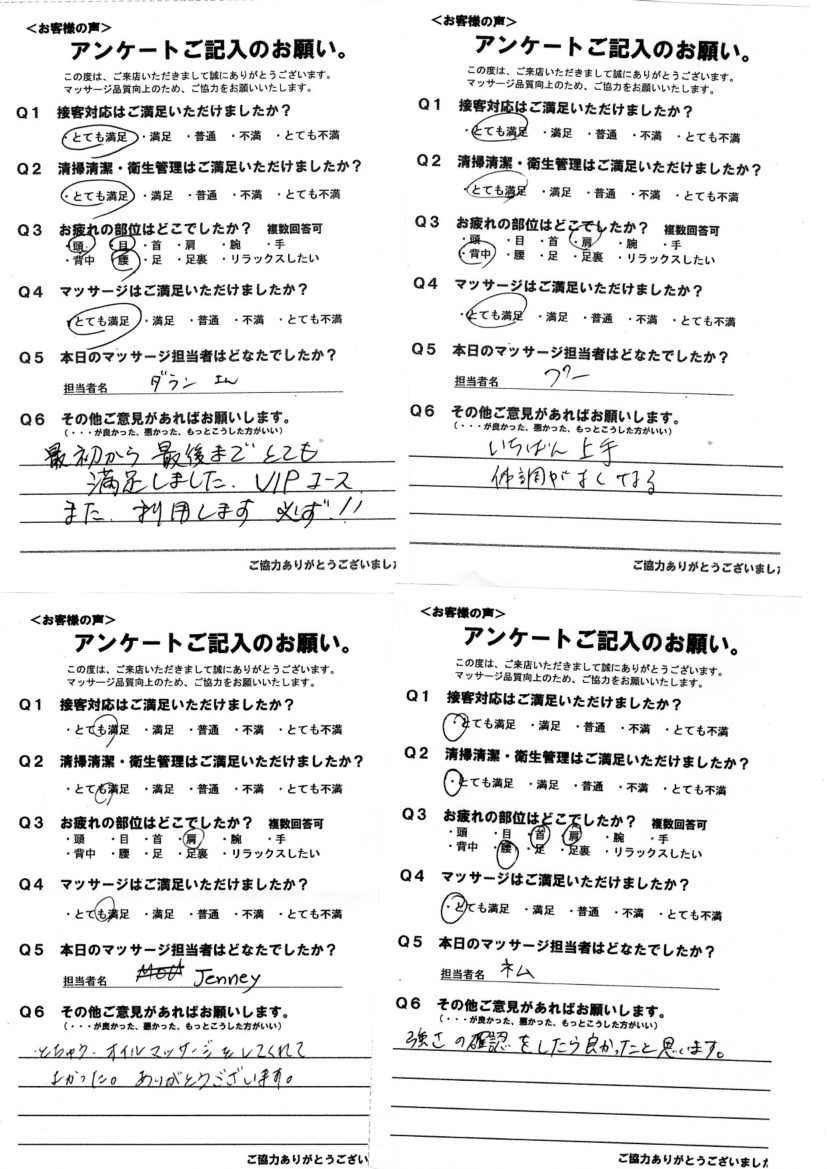 ＜お客様の声＞
アンケートご記入のお願い。
この度は、ご来店いただきまして誠にありがとうございます。
マッサージ品質向上のため、ご協力をお願いいたします。
Q1 接客対応はご満足いただけましたか？
・とても満足 ・満足 ・普通 ・不満 ・とても不満
Q2 清掃清潔・衛生管理はご満足いただけましたか？
・とても満足 ・満足 ・普通 ・不満 ・とても不満
Q3 お疲れの部位はどこでしたか？ 複数回答可
・頭 ・目 ・首 ・肩 ・腕 ・手
・背中 ・腰 ・足 ・足裏 ・リラックスしたい
Q4 マッサージはご満足いただけましたか？
・とても満足 ・満足 ・普通 ・不満 ・とても不満
Q5 本日のマッサージ担当者はどなたでしたか？
担当者名 ダラン
Q6 その他ご意見があればお願いします。
（・・・が良かった、悪かった、もっとこうした方がいい）
最初から 最後まで とても
満足しました. VIPコース
また. 利用します 必ず!!
ご協力ありがとうございました
＜お客様の声＞
アンケートご記入のお願い。
この度は、ご来店いただきまして誠にありがとうございます。
マッサージ品質向上のため、ご協力をお願いいたします。
Q1 接客対応はご満足いただけましたか？
・とても満足 ・満足 ・普通 ・不満 ・とても不満
Q2 清掃清潔・衛生管理はご満足いただけましたか？
・とても満足 ・満足 ・普通 ・不満 ・とても不満
Q3 お疲れの部位はどこでしたか？ 複数回答可
・頭 ・目 ・首 ・肩 ・腕 ・手
・背中 ・腰 ・足 ・足裏 ・リラックスしたい
Q4 マッサージはご満足いただけましたか？
・とても満足 ・満足 ・普通 ・不満 ・とても不満
Q5 本日のマッサージ担当者はどなたでしたか？
担当者名
Q6 その他ご意見があればお願いします。
（・・・が良かった、悪かった、もっとこうした方がいい）
いちばん 上手
体調がよくなる
ご協力ありがとうございまし
＜お客様の声＞
アンケートご記入のお願い。
この度は、ご来店いただきまして誠にありがとうございます。
マッサージ品質向上のため、ご協力をお願いいたします。
Q1 接客対応はご満足いただけましたか？
・とても満足 ・満足 ・普通 ・不満 ・とても不満
Q2 清掃清潔・衛生管理はご満足いただけましたか？
・とても満足 ・満足 ・普通 ・不満 ・とても不満
Q3 お疲れの部位はどこでしたか？ 複数回答可
・頭 ・目 ・首 ・肩 ・腕 ・手
・背中 ・腰 ・足 ・足裏 ・リラックスしたい
Q4 マッサージはご満足いただけましたか？
・とても満足 ・満足 ・普通 ・不満 ・とても不満
Q5 本日のマッサージ担当者はどなたでしたか？
担当者名 Jenney
Q6 その他ご意見があればお願いします。
（・・・が良かった、悪かった、もっとこうした方がいい）
とちゅう オイルマッサージをしてくれて
よかった。 ありがとうございます。
ご協力ありがとうござい
＜お客様の声＞
アンケートご記入のお願い。
この度は、ご来店いただきまして誠にありがとうございます。
マッサージ品質向上のため、ご協力をお願いいたします。
Q1 接客対応はご満足いただけましたか？
・とても満足 ・満足 ・普通 ・不満 ・とても不満
Q2 清掃清潔・衛生管理はご満足いただけましたか？
・とても満足 ・満足 ・普通 ・不満 ・とても不満
Q3 お疲れの部位はどこでしたか？ 複数回答可
・頭 ・目 ・首 ・肩 ・腕 ・手
・背中 ・腰 ・足 ・足裏 ・リラックスしたい
Q4 マッサージはご満足いただけましたか？
・とても満足 ・満足 ・普通 ・不満 ・とても不満
Q5 本日のマッサージ担当者はどなたでしたか？
担当者名 ネム
Q6 その他ご意見があればお願いします。
（・・・が良かった、悪かった、もっとこうした方がいい）
強さの確認をしたら良かったと思います。
ご協力ありがとうございまし